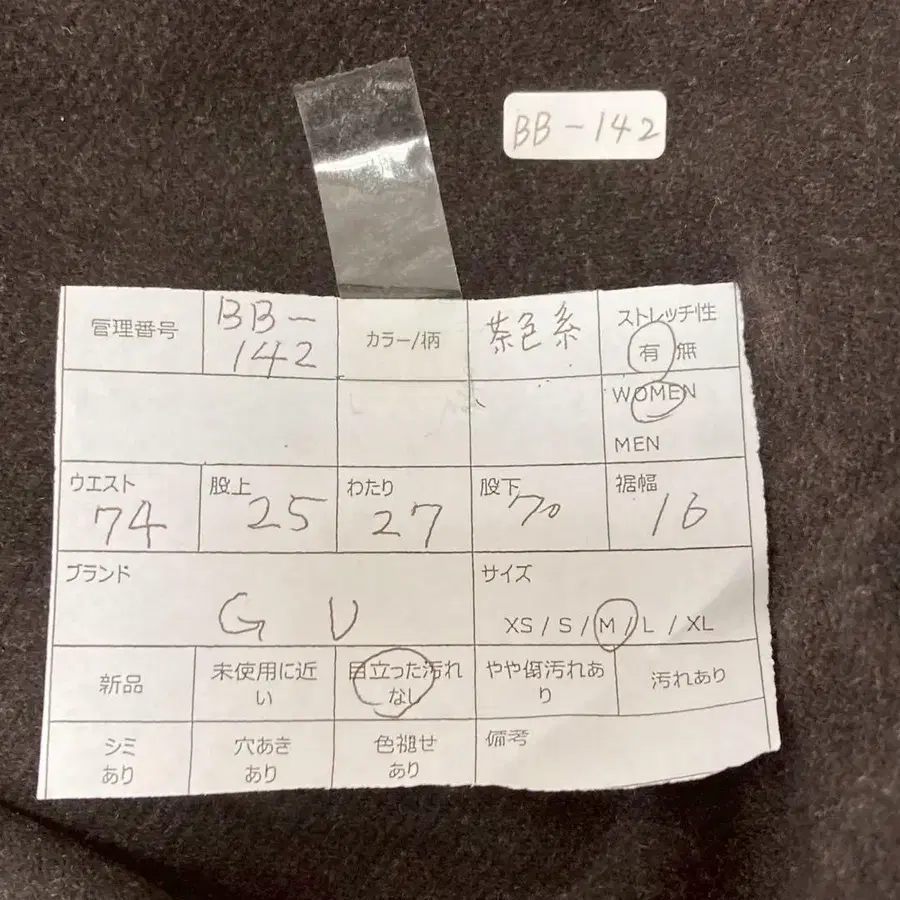 BB-142
管理番号
BB-
142
カラー/柄
茶色系
ストレッチ性
有 無
WOMEN
MEN
ウエスト
74
股上
25
わたり
27
股下
70
裾幅
16
ブランド
GU
サイズ
XS / S / M / L / XL
新品
未使用に近
い
目立った汚れ
なし
やや傷汚れあ
り
汚れあり
シミ
あり
穴あき
あり
色褪せ
あり
備考